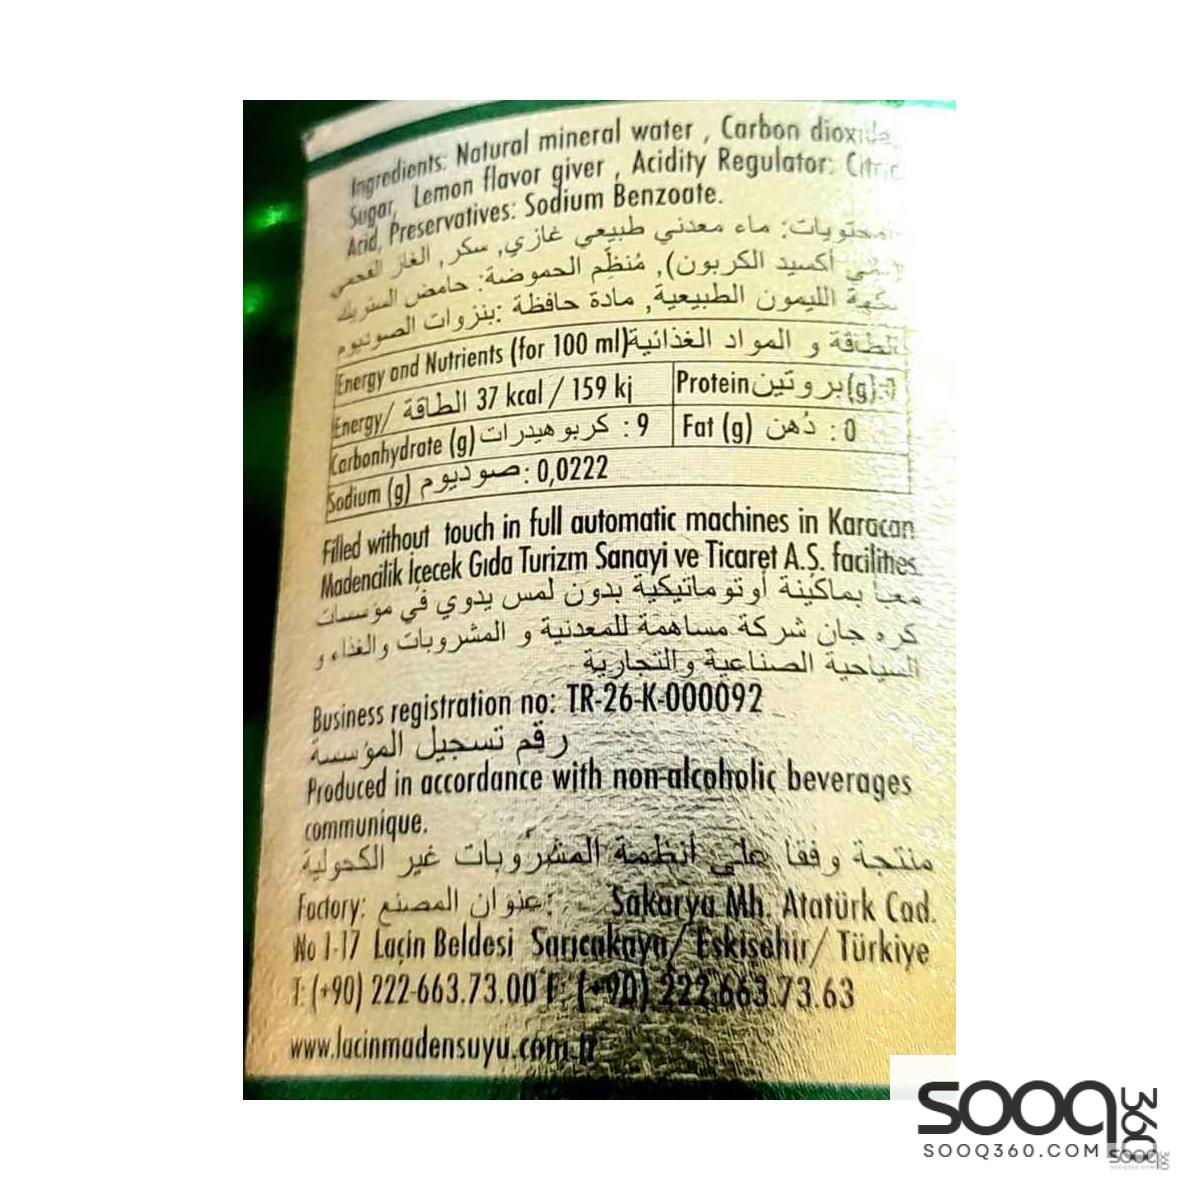 Ingredients: Natural mineral water , Carbon dioxide,
Sugar, Lemon flavor giver , Acidity Regulator: Citric
Acid, Preservatives: Sodium Benzoate.
محتويات: ماء معدني طبيعي غازي, سكر , الغاز الفحمي
أكسيد الكربون), مُنظِّم الحموضة: حامض الستريك
نكهة الليمون الطبيعية, مادة حافظة :بنزوات الصوديوم
Energy and Nutrients (for 100 ml) الطاقة و المواد الغذائية
Energy/ الطاقة 37 kcal / 159 kj Protein بروتين (g):
Carbonhydrate (g) كربوهيدرات : 9 Fat (g) دُهن : 0
Sodium (g) صوديوم : 0,0222
Filled without touch in full automatic machines in Karacan
Madencilik İçecek Gıda Turizm Sanayi ve Ticaret A.Ş. facilities.
بماكينة أوتوماتيكية بدون لمس يدوي في مؤسسات
كره جان شركة مساهمة للمعدنية و المشروبات والغذاء و
السياحية الصناعية والتجارية
Business registration no: TR-26-K-000092
رقم تسجيل المؤسسة
Produced in accordance with non-alcoholic beverages
communique.
منتجة وفقا على أنظمة المشروبات غير الكحولية
Factory: عنوان المصنع: Sakarya Mh. Atatürk Cad.
No 1-17 Laçin Beldesi Sarıcakaya/ Eskişehir/ Türkiye
T: (+90) 222-663.73.00 F: (+90) 222.663.73.63
www.lacinmadensuyu.com.tr
SOOQ360
SOOQ360.COM
SOOQ360